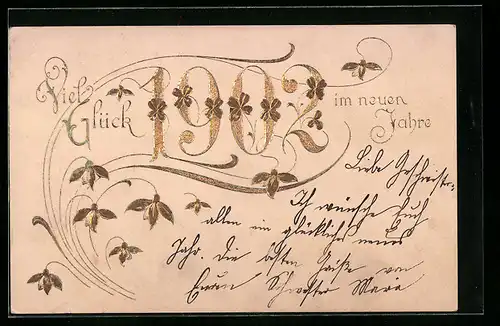 Viel
Glück
1902
im neuen
Jahre
Liebe Geschwister.
Ich wünsche Euch
allen ein glückliches neues
Jahr. Die besten Grüße von
Eurer Schwester Mara